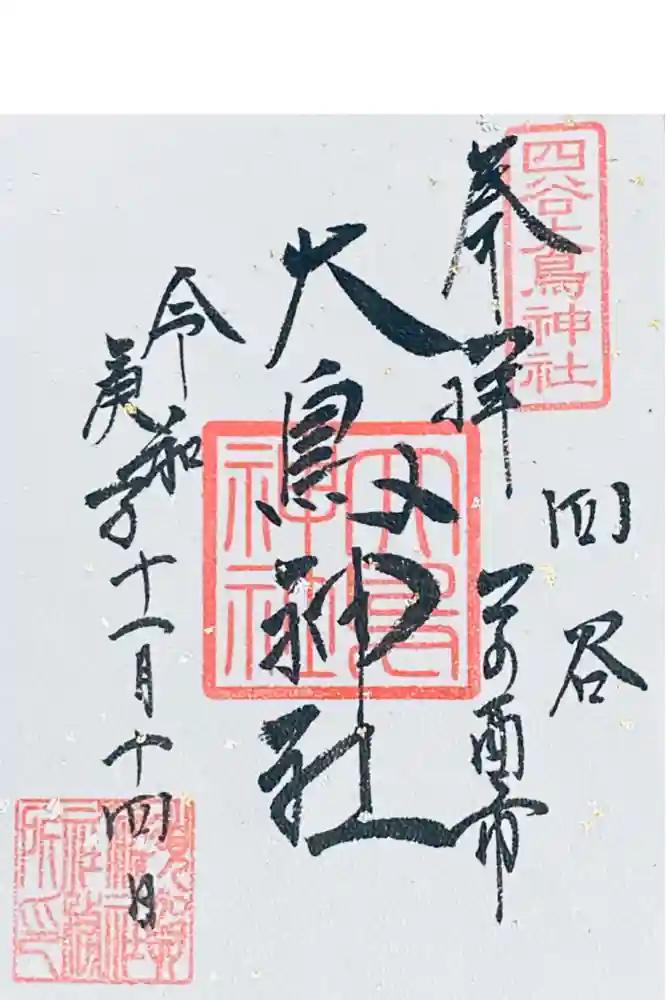 四谷大鳥神社
四谷
奉拝
酉市
大鳥神社
大鳥
神社
令和
庚子十一月十四日